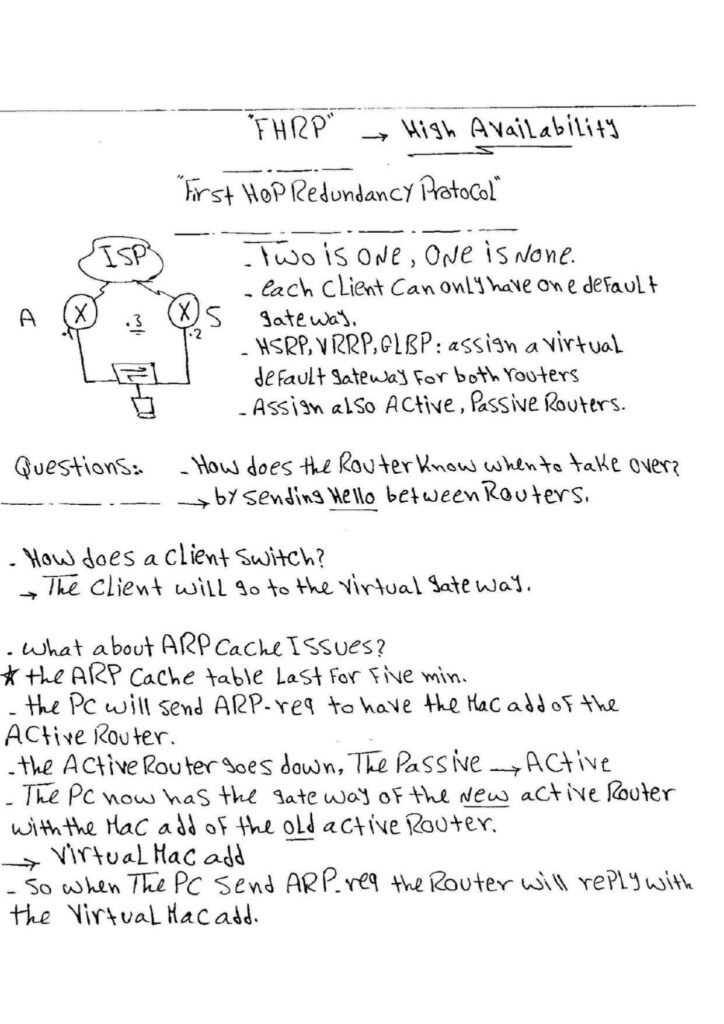 "FHRP" → High Availability
"First HOP Redundancy Protocol"
ISP
A
X
X
S
.1
.3
.2
- Two is ONE, ONE is NONE.
- each client can only have one default
gateway.
- HSRP, VRRP, GLBP: assign a virtual
default gateway for both routers
- Assign also Active, Passive Routers.
Questions:- - How does the Router know when to take over?
→ by sending Hello between Routers.
- How does a client switch?
→ The client will go to the virtual gateway.
. What about ARP Cache Issues?
★ the ARP Cache table Last for five min.
- the PC will send ARP-req to have the Mac add of the
Active Router.
- the Active Router goes down, The Passive → Active
- The PC now has the gateway of the new active Router
with the Mac add of the old active Router.
→ Virtual Mac add
- So when The PC Send ARP-req the Router will reply with
the Virtual Mac add.